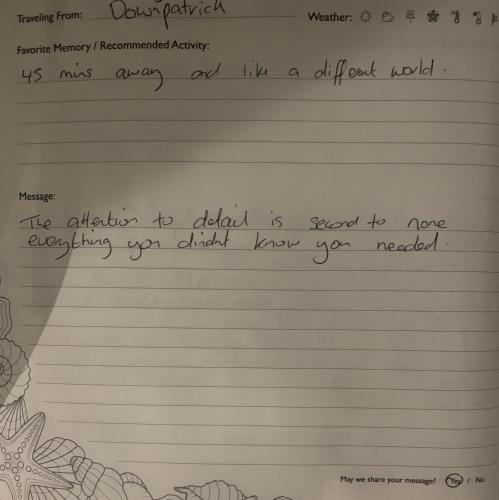 Traveling From: Downpatrick Weather:
Favorite Memory / Recommended Activity:
45 mins away and like a different world.
Message:
The attention to detail is second to none
everything you dindnt know you needed.
May we share your message? Yes / No